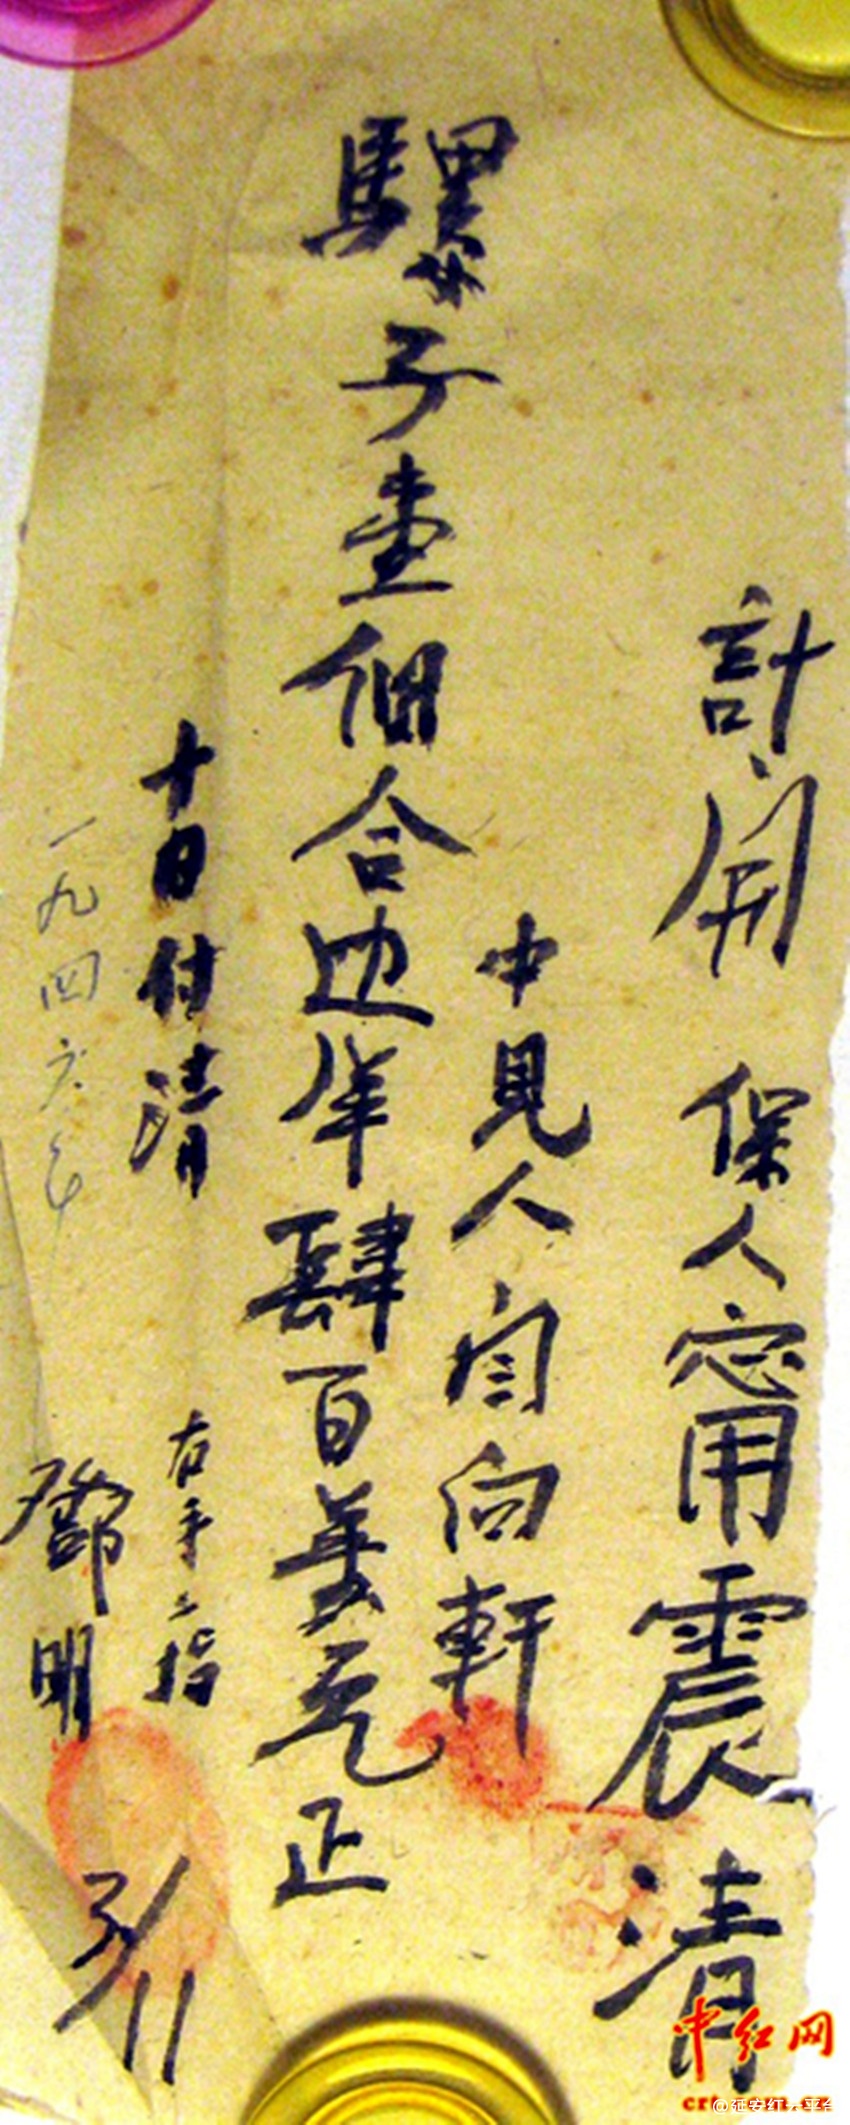 計開 保人甯用震清
中見人閆向軒
騾子壹個合边洋肆百萬元正
十日付清
右手二指
一九四六年
鄧明
3/11
中红网
@延安红